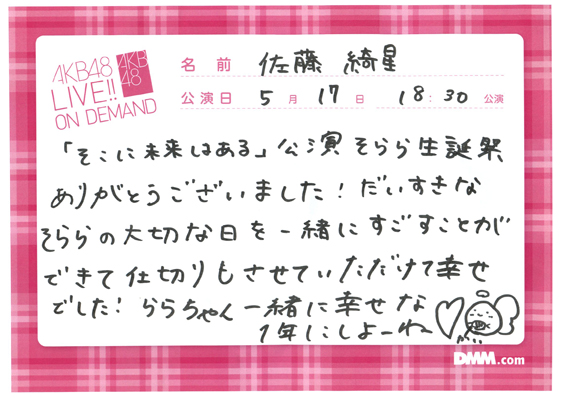 AKB48
LIVE!!
ON DEMAND
AKB
48
名前 佐藤 綺星
公演日 5月17日 18:30公演
「そこに未来はある」公演 そらら生誕祭
ありがとうございました！だいすきな
そららの大切な日を一緒にすごすことが
できて仕切りもさせていただけて幸せ
でした！ららちゃん一緒に幸せな
1年にしよーね〜
DMM.com